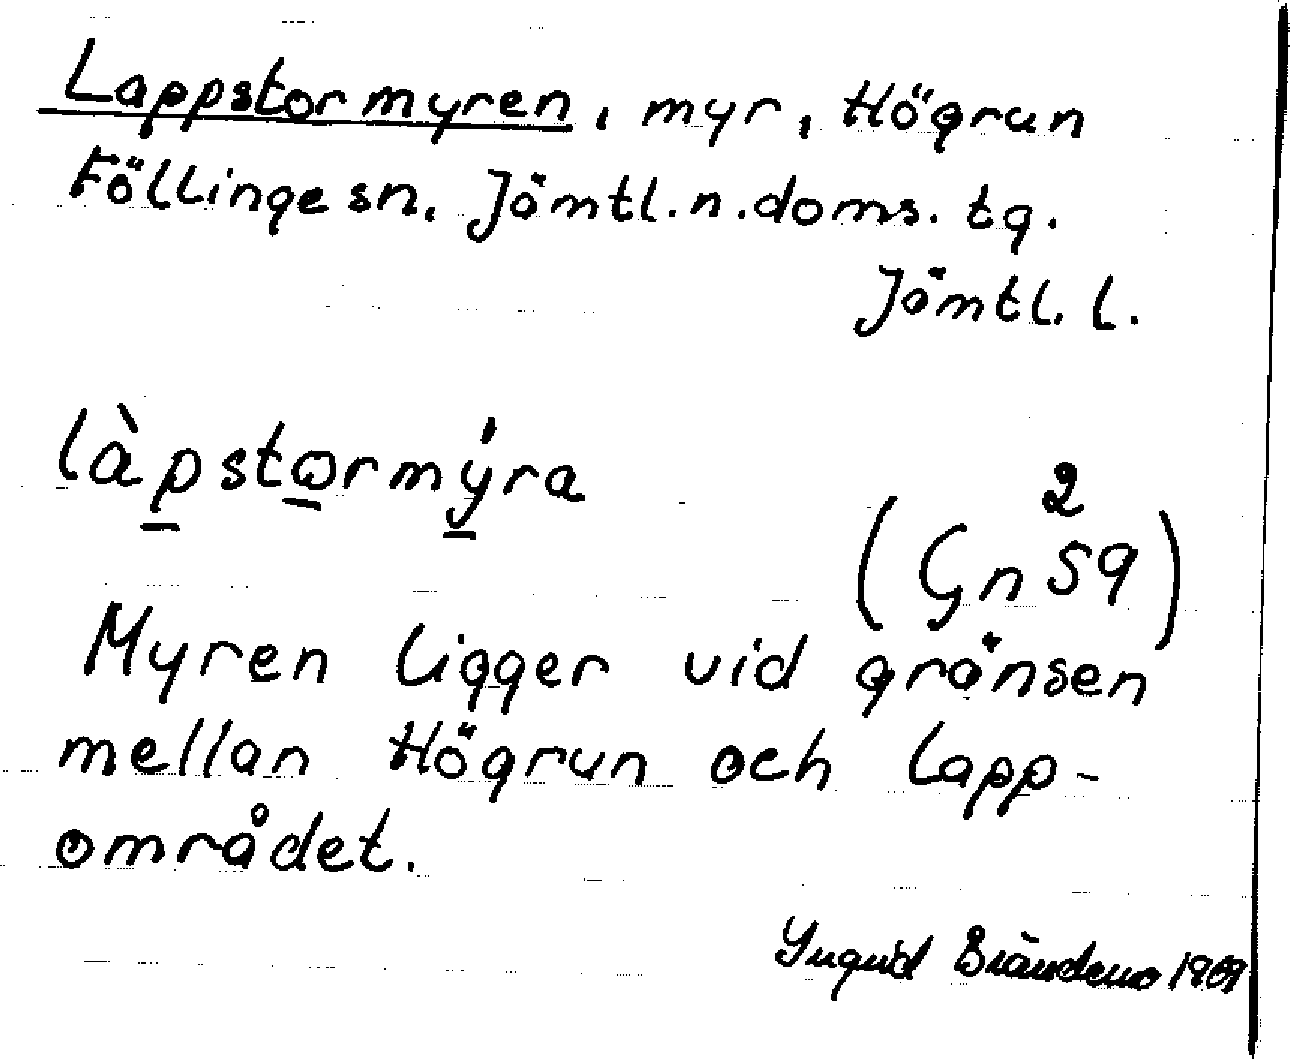 Lappstormyren, myr, Högrun
Föllinge sn. Jämtl. n. doms. tg.
Jämtl. l.
làpstormýra
2
(Gn 59)
Myren ligger vid gränsen
mellan Högrun och lapp-
området.
Ingrid